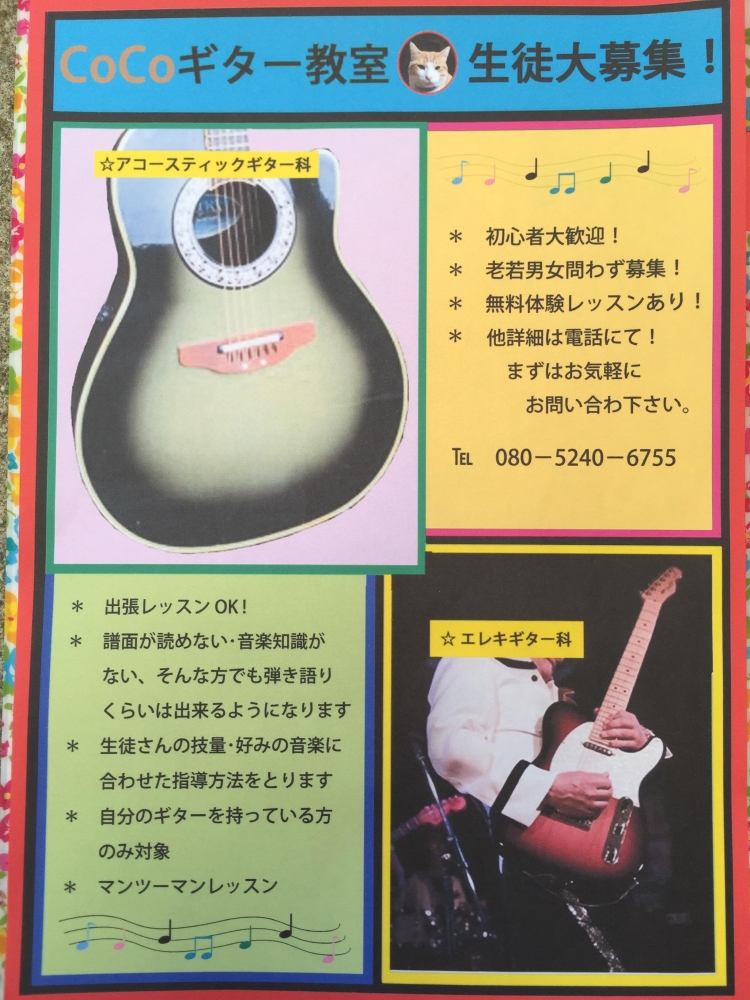 CoCoギター教室 生徒大募集！
☆アコースティックギター科
＊ 初心者大歓迎！
＊ 老若男女問わず募集！
＊ 無料体験レッスンあり！
＊ 他詳細は電話にて！
まずはお気軽に
お問い合わ下さい。
TEL 080－5240－6755
＊ 出張レッスン OK！
＊ 譜面が読めない･音楽知識が
ない、そんな方でも弾き語り
くらいは出来るようになります
＊ 生徒さんの技量･好みの音楽に
合わせた指導方法をとります
＊ 自分のギターを持っている方
のみ対象
＊ マンツーマンレッスン
☆ エレキギター科